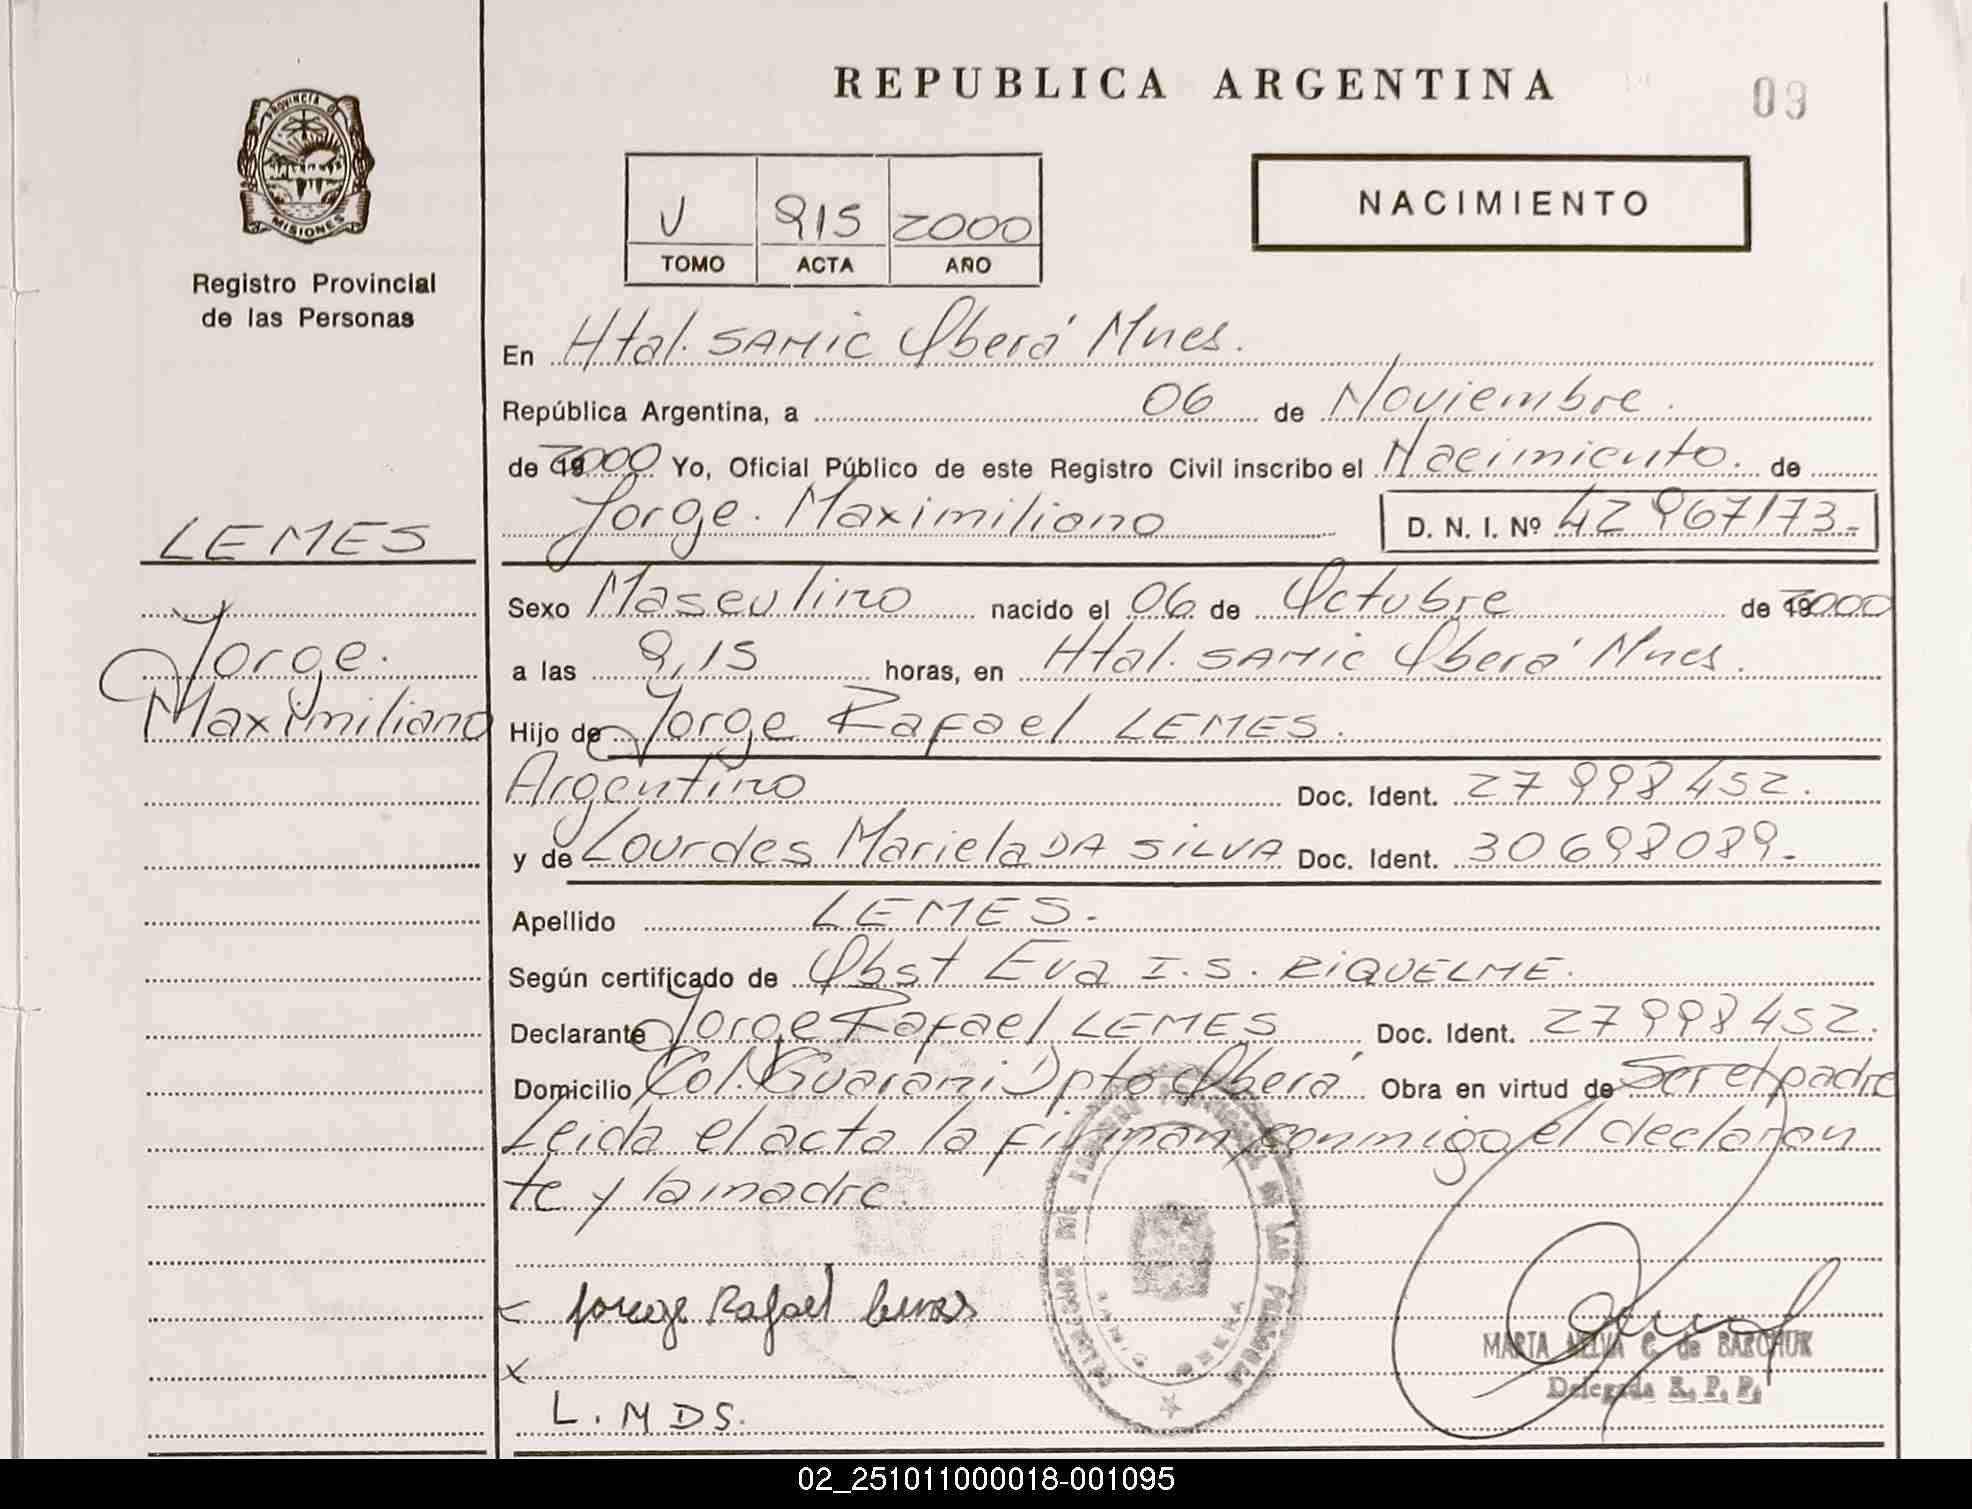 REPUBLICA ARGENTINA
09
PROVINCIA D
MISIONES
Registro Provincial
de las Personas
V 915 2000
TOMO ACTA AÑO
NACIMIENTO
En Htal. SAMIC Oberá Mnes.
República Argentina, a 06 de Noviembre.
de 2000 Yo, Oficial Público de este Registro Civil inscribo el Nacimiento. de
Jorge. Maximiliano D. N. I. Nº 42967173.-
LEMES
Jorge.
Maximiliano
Sexo Masculino nacido el 06 de Octubre de 2000
a las 9,15 horas, en Htal. SAMIC Oberá Mnes.
Hijo de Jorge Rafael LEMES.
Argentino Doc. Ident. 27998452.
y de Lourdes Mariela DA SILVA Doc. Ident. 30698089.-
Apellido LEMES.
Según certificado de Obst Eva I.S. RIQUELME.
Declarante Jorge Rafael LEMES Doc. Ident. 27998452.
Domicilio Col. Guarani Dpto Oberá Obra en virtud de Ser el padre
Leida el acta la firman conmigo el declaran
te y la madre.
Jorege Rafael lemes
x
L. M D S.
MARTA NELVA C. de BARCHUK
Delegada R. P. P.
02_251011000018-001095